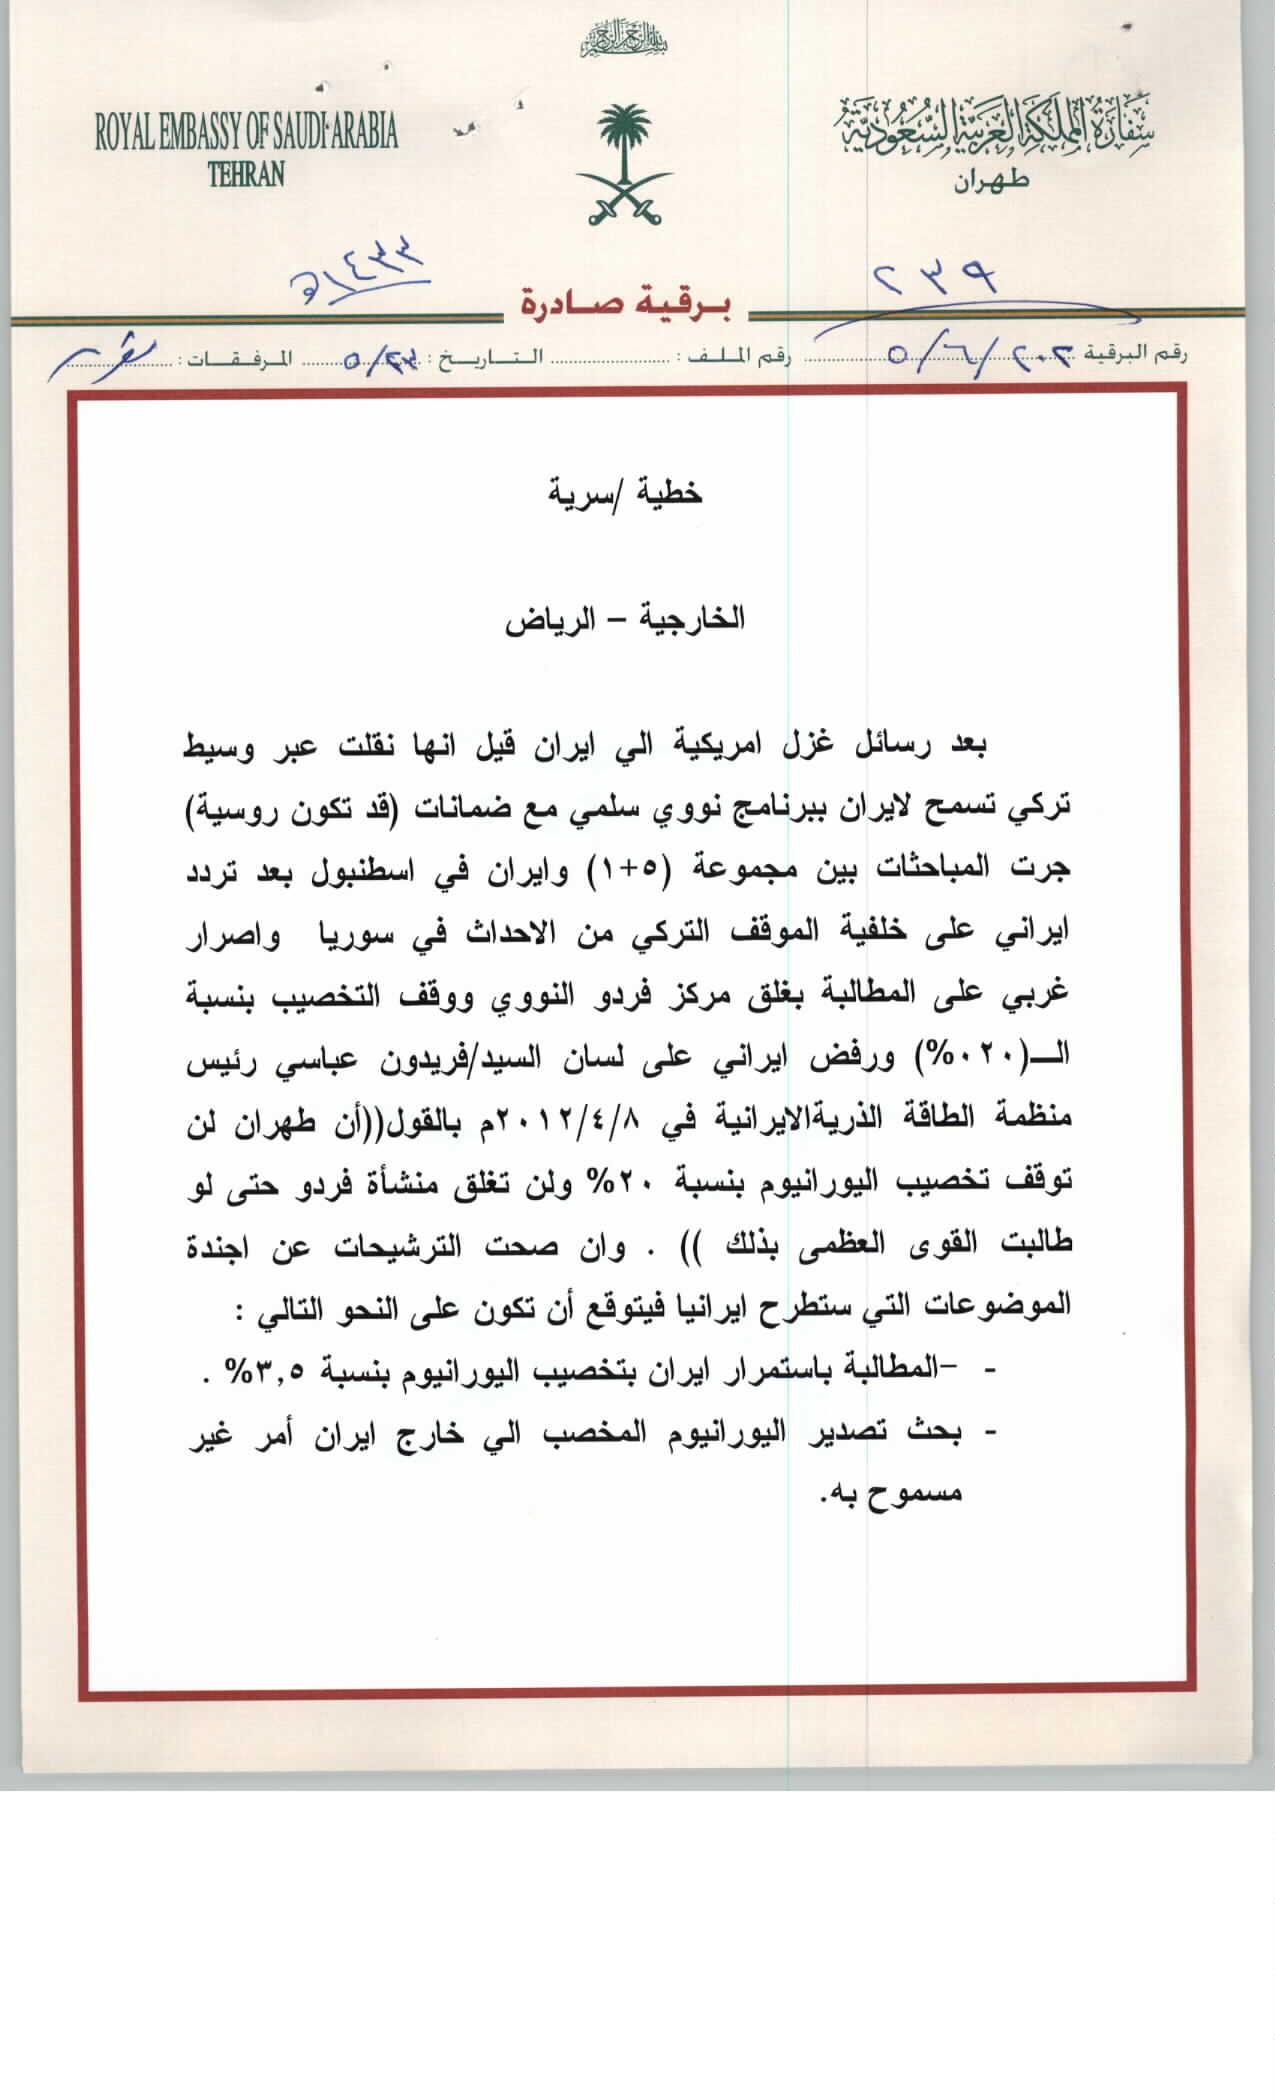 بسم الله الرحمن الرحيم
ROYAL EMBASSY OF SAUDI ARABIA
TEHRAN
سفارة المملكة العربية السعودية
طهران
٢٣٩
١٤٣٣هـ
برقية صادرة
رقم البرقية ٢٠٢/٦/٥ رقم الملف : التاريخ : ٥/٢٣ المرفقات :
خطية /سرية
الخارجية – الرياض
بعد رسائل غزل امريكية الي ايران قيل انها نقلت عبر وسيط
تركي تسمح لايران ببرنامج نووي سلمي مع ضمانات (قد تكون روسية)
جرت المباحثات بين مجموعة (٥+١) وايران في اسطنبول بعد تردد
ايراني على خلفية الموقف التركي من الاحداث في سوريا واصرار
غربي على المطالبة بغلق مركز فردو النووي ووقف التخصيب بنسبة
الـ(٠٢٠%) ورفض ايراني على لسان السيد/فريدون عباسي رئيس
منظمة الطاقة الذريةالايرانية في ٢٠١٢/٤/٨م بالقول((أن طهران لن
توقف تخصيب اليورانيوم بنسبة ٢٠% ولن تغلق منشأة فردو حتى لو
طالبت القوى العظمى بذلك )) . وان صحت الترشيحات عن اجندة
الموضوعات التي ستطرح ايرانيا فيتوقع أن تكون على النحو التالي :
- –المطالبة باستمرار ايران بتخصيب اليورانيوم بنسبة ٣,٥% .
- بحث تصدير اليورانيوم المخصب الي خارج ايران أمر غير
مسموح به.